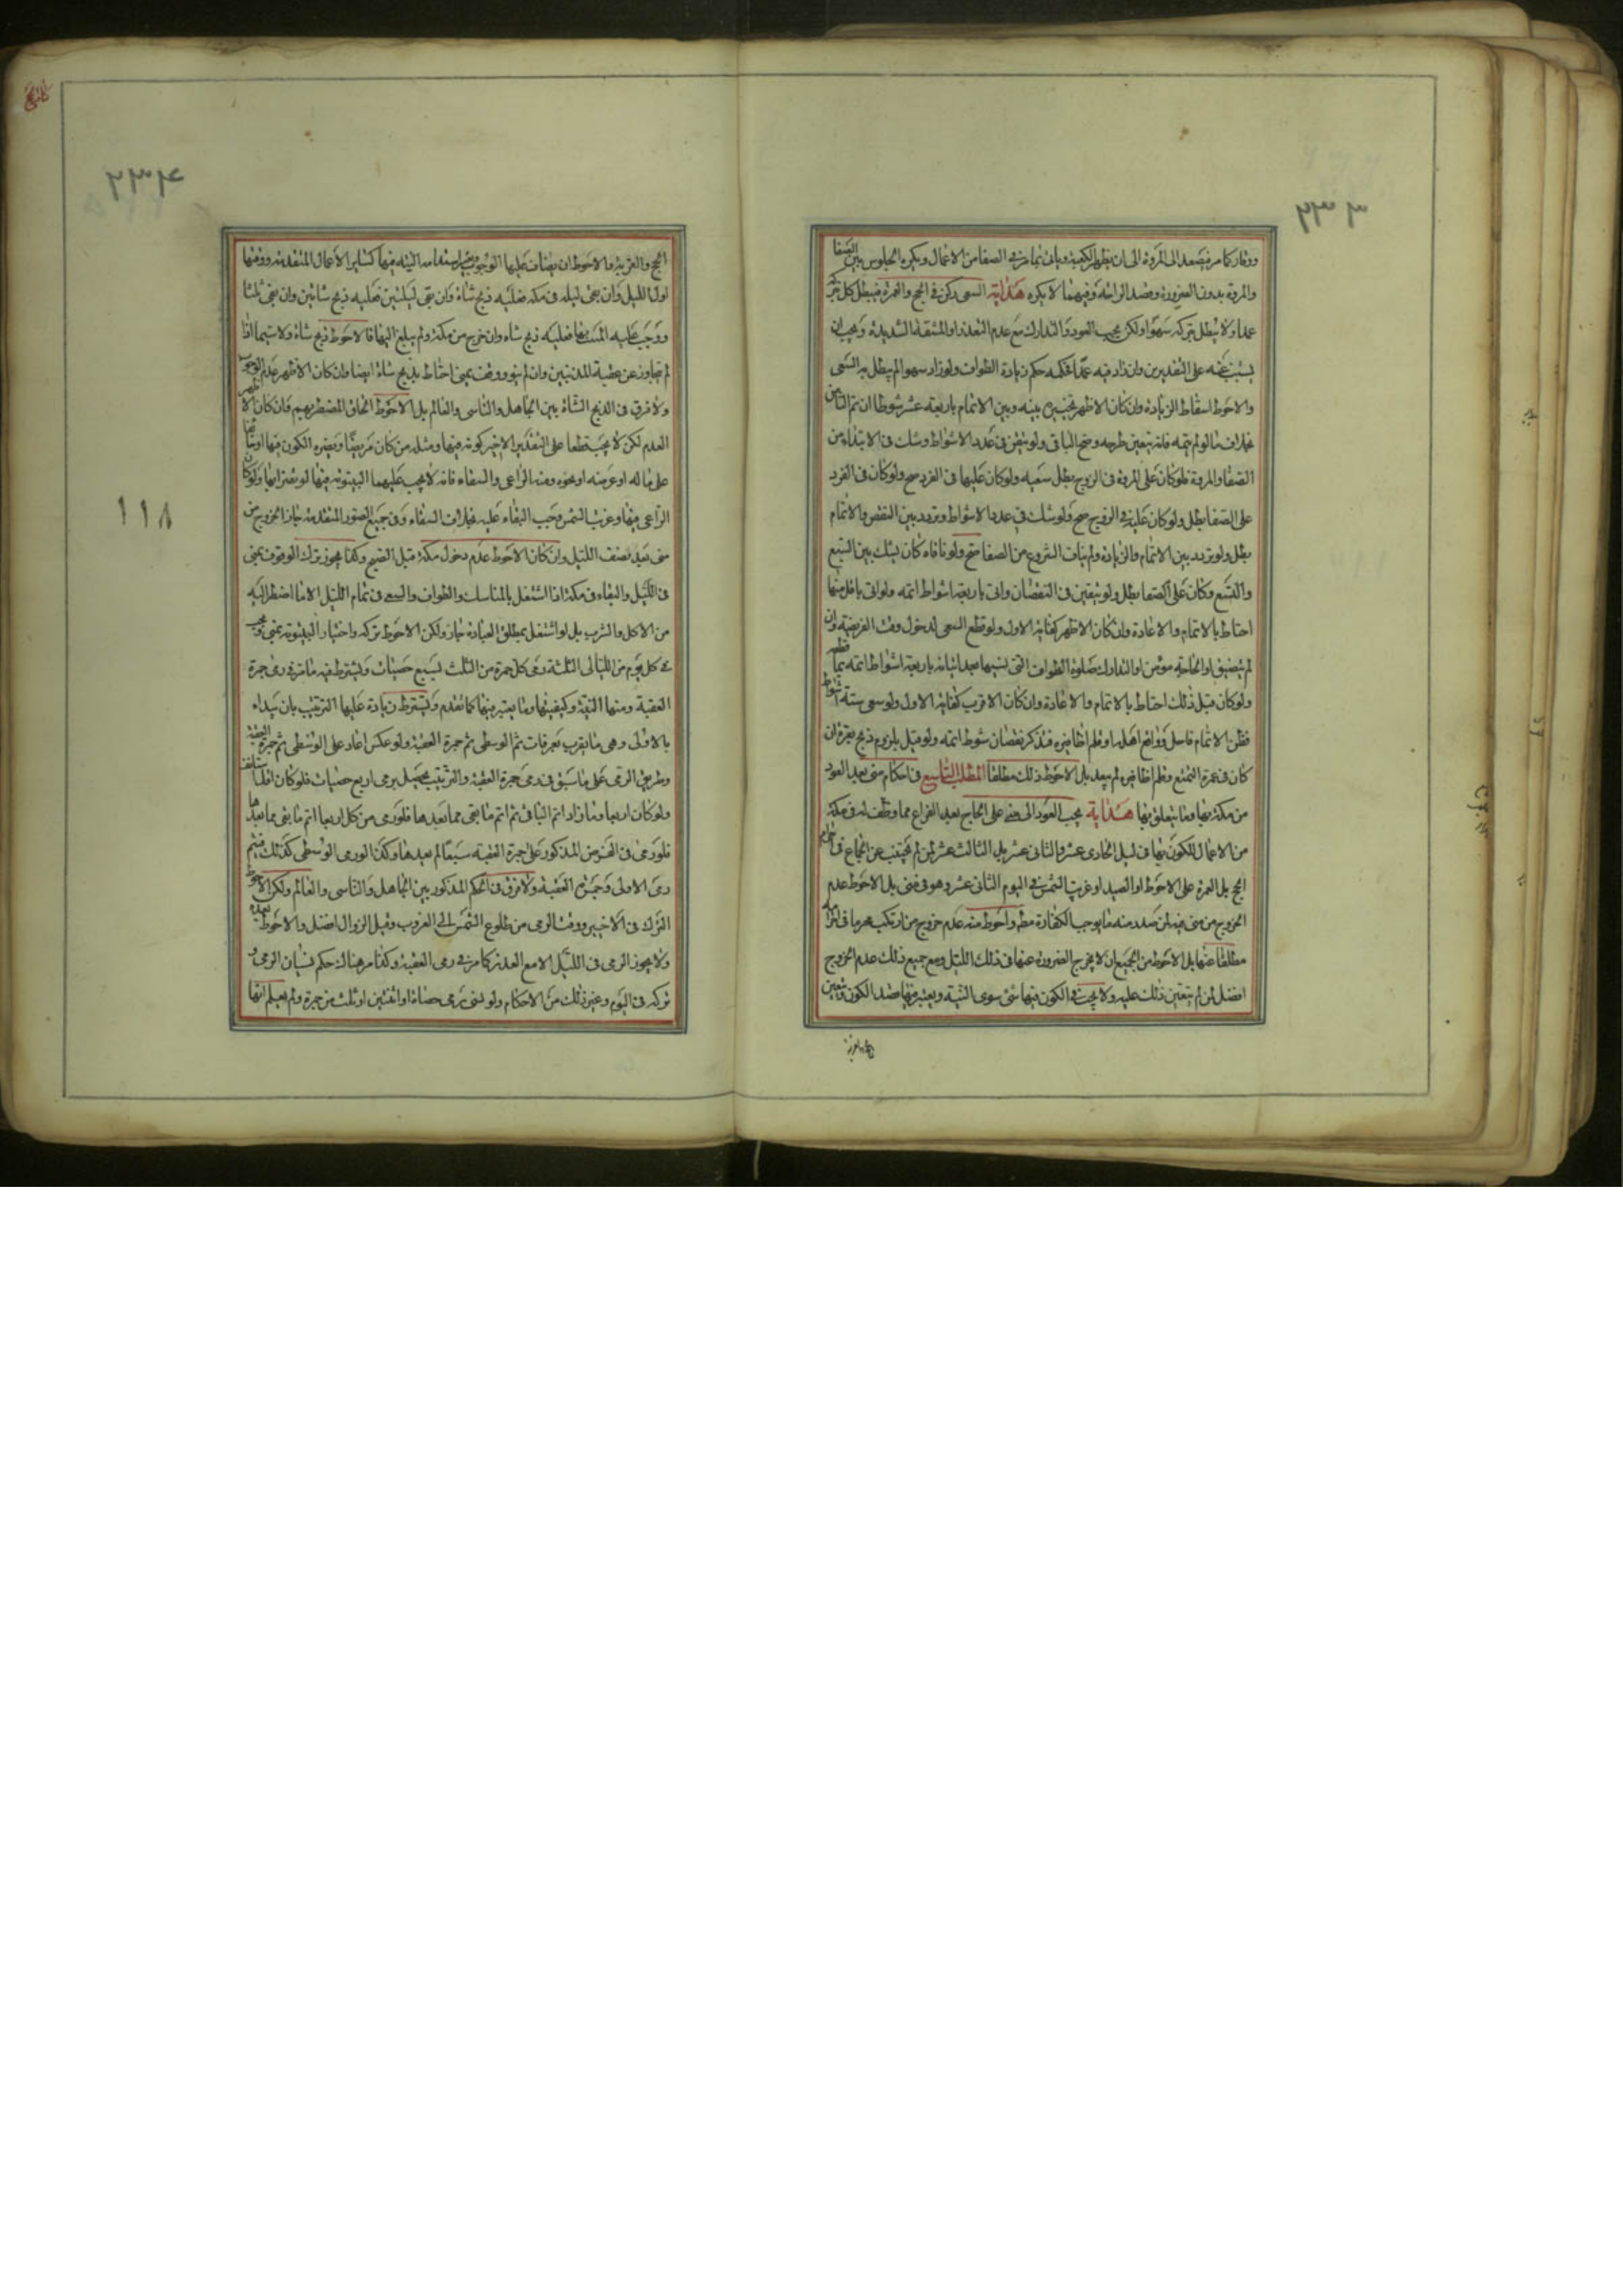 ٢٣٣
ووقار كما مر فيصعد الى المروة الى ان يظهر له الكعبة وياتى بما مر فى الصفا من الاعمال ويكره الجلوس بين الصفا
والمروة بدون الضرورة وقصد الراحة وفيهما لا يكره هداية السعى ركن فى الحج والعمرة فيبطل كل بتركه
عمدا ولا يبطل بتركه سهوا ولكن يجب العود والتدارك مع عدم التعذر او المشقة الشديدة ويجب ان
يستنيب عنه على التقديرين وان زاد فيه عمدا فحكمه حكم زيادة الطواف ولو زاد سهوا لم يبطل به السعى
والاحوط اسقاط الزيادة وان كان الاظهر تخييره بينه وبين الاتمام باربعة عشر شوطا ان تم الثامن
بخلاف ما لو لم يتمه فانه يتعين طرحه وصح الباقى ولو تيقن فى عدد الاشواط وشك فى الابتداء من
الصفا والمروة فلو كان على المروة فى الزوج بطل سعيه ولو كان عليها فى الفرد صح ولو كان فى الفرد
على الصفا بطل ولو كان عليه فى الزوج صح ولو شك فى عدد الاشواط وتردد بين النقص والاتمام
بطل ولو تردد بين الاتمام والزيادة ولم يناف الشروع من الصفا صح ولو نافاه كان يشك بين السبع
والتسع وكان على الصفا بطل ولو تيقن فى النقصان واتى باربعة اشواط اتمه ولو اتى باقل منها
احتاط بالاتمام والاعادة وان كان الاظهر كفاية الاول ولو قطع السعى لدخول وقت الفريضة وان
لم يتضيق او لحاجة مؤمن او لتدارك صلوة الطواف التى نسيها بعد اتيانه باربعة اشواط اتمه
ولو كان قبل ذلك احتاط بالاتمام والاعادة وان كان الاقرب كفاية الاول ولو سعى ستة اشواط
فظن الاتمام فاحل وواقع اهله او قلم اظافيره فتذكر نقصان شوط اتمه ولو قيل بلزوم ذبح بقرة ان
كان فى عمرة التمتع وقلم اظافيره لم يبعد بل الاحوط ذلك مطلقا المطلب التاسع فى احكام منى بعد العود
من مكة بها وما يتعلق بها هداية يجب العود الى منى على الحاج بعد الفراغ مما وظف له فى مكة
من الاعمال للكون بها فى ليل الحادى عشر والثانى عشر بل الثالث عشر لمن لم يجتنب عن الجماع فى احرام
الحج بل العمرة على الاحوط او الصيد او غربت الشمس فى اليوم الثانى عشر وهو فى منى بل الاحوط عدم
الخروج من منى فيه لمن صدر منه ما يوجب الكفارة مطلقا واحوط منه عدم خروج من ارتكب محرما فى احرامه
مطلقا عنها بل الاحوط من الجميع ان لا يخرج الصرورة عنها فى ذلك الليل ومع جميع ذلك عدم الخروج
افضل لمن لم يتعين ذلك عليه ولا يجب فى الكون فيها شئ سوى النية ويعتبر فيها قصد الكون وتعيين
الحج والعزيمة
٢٣٤
الحج والقربة والاحوط ان يضاف عليها الوجوب واستدامة النية فيها كساير الاعمال المتقدمة ووقتها
اول الليل وان بقى ليلة فى مكة فعليه ذبح شاة وان بقى ليلتين فعليه ذبح شاتين وان بقى ثلثا
ووجب عليه المبيت بها فعليه ذبح شاه وان خرج من مكة ولم يبلغ اليها فالاحوط ذبح شاة ولا سيما اذا
لم يتجاوز عن عقبة المدنيين وان لم ينو ووقف بمنى احتاط بذبح شاة ايضا وان كان الاظهر عدم الوجوب
ولا فرق فى الذبح الشاة بين الجاهل والناسى والعالم بل الاحوط الحاق المضطر بهم فان كان الاظهر
العدم لكن لا يجب قطعا على التقدير الاخير كونه فيها ومثله من كان مريضا ويضره الكون فيها او خاف
على ماله او عرضه او نحوه ومنه الراعى والسقاء فانه لا يجب عليهما البيتوتة فيها لو يضر ابها ولو كان
الراعى فيها وغربت الشمس وجب البقاء عليه بخلاف السقاء وفى جميع الصور المتقدمة جاز الخروج من
منى بعد نصف الليل وان كان الاحوط عدم دخول مكة قبل الصبح وكذا يجوز ترك الوقوف بمنى
فى الليل والبقاء فى مكة اذا اشتغل بالمناسك والطواف والسعى فى تمام الليل الا ما اضطر اليه
من الاكل والشرب بل لو اشتغل بمطلق العبادة جاز ولكن الاحوط تركه واختيار البيتوتة بمنى ويجب
فى كل يوم من الليالى الثلثة رمى كل جمرة من الثلث بسبع حصيات ويشترط فيه ما مر فى رمى جمرة
العقبة ومنها النية وكيفيتها وما يعتبر فيها كما تقدم ويشترط زيادة عليها الترتيب بان يبداء
بالاولى وهى ما يقرب بعرفات ثم الوسطى ثم جمرة العقبة ولو عكس اعاد على الوسطى ثم جمرة العقبة
وطريق الرمى على ما سبق فى رمى جمرة العقبة والترتيب يحصل برمى اربع حصيات فلو كان اقل استانف
ولو كان اربعا وما زاد اتم الباقى ثم اتم ما بقى مما بعدها فلو رمى من كل اربعا اتم ما بقى مما بعدها
فلو رمى فى الفرض المذكور على جمرة العقبة سبعا لم يعدها وكذا لو رمى الوسطى كذلك فيتم
رمى الاولى وجمرة العقبة ولا فرق فى الحكم المذكور بين الجاهل والناسى والعالم ولكن الاحوط
الترك فى الاخير ووقت الرمى من طلوع الشمس الى الغروب وقبل الزوال افضل والاحوط بعده
ولا يجوز الرمى فى الليل الا مع العذر كما مر فى رمى العقبة وكذا مر هناك حكم نسيان الرمى و
تركه فى اليوم وغير ذلك من الاحكام ولو نسى رمى حصاة او اثنتين او ثلث من جمرة ولم يعلم انها
١١٨